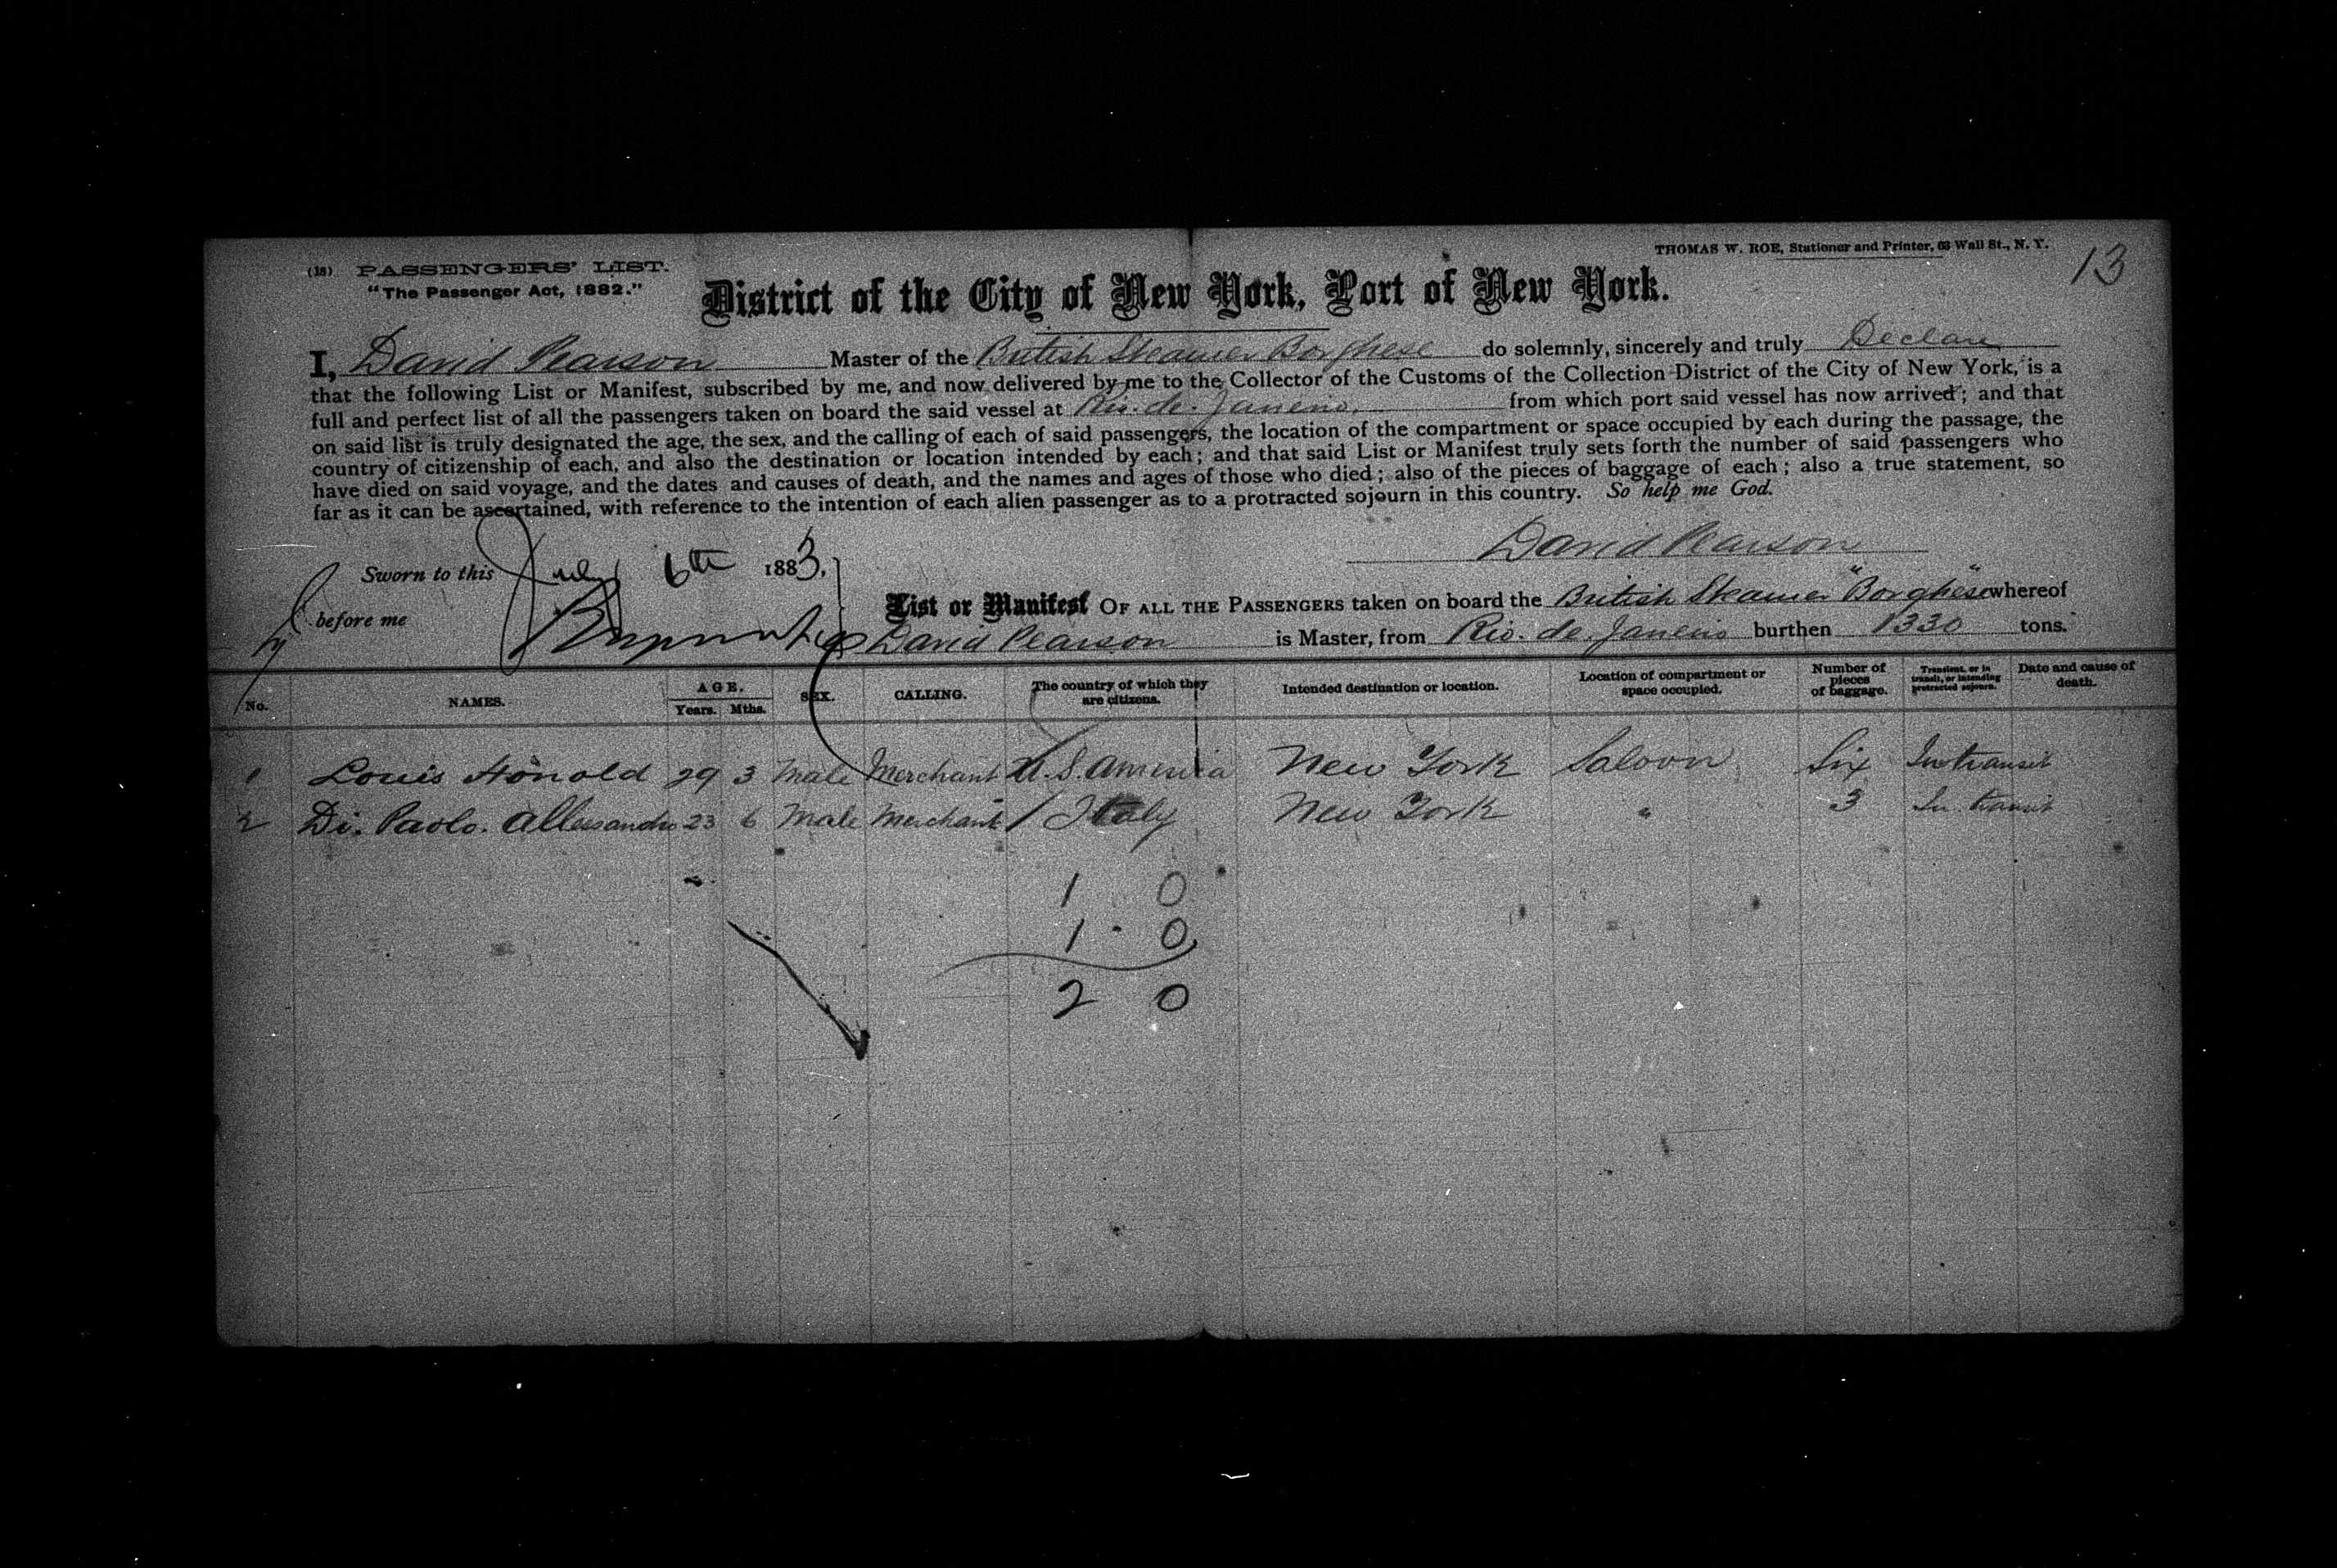 THOMAS W. ROE, Stationer and Printer, 63 Wall St., N. Y.
13
(18) PASSENGERS' LIST.
"The Passenger Act, 1882."
District of the City of New York, Port of New York.
I, David Pearson Master of the British Steamer Borghese do solemnly, sincerely and truly Declare
that the following List or Manifest, subscribed by me, and now delivered by me to the Collector of the Customs of the Collection District of the City of New York, is a
full and perfect list of all the passengers taken on board the said vessel at Rio. de. Janeiro. from which port said vessel has now arrived; and that
on said list is truly designated the age, the sex, and the calling of each of said passengers, the location of the compartment or space occupied by each during the passage, the
country of citizenship of each, and also the destination or location intended by each; and that said List or Manifest truly sets forth the number of said passengers who
have died on said voyage, and the dates and causes of death, and the names and ages of those who died; also of the pieces of baggage of each; also a true statement, so
far as it can be ascertained, with reference to the intention of each alien passenger as to a protracted sojourn in this country. So help me God.
David Pearson
Sworn to this July 6th 1883,
before me
List or Manifest OF ALL THE PASSENGERS taken on board the British Steamer "Borghese" whereof
David Pearson is Master, from Rio. de. Janeiro burthen 1330 tons.
No. NAMES. AGE. Years. Mths. SEX. CALLING. The country of which they are citizens. Intended destination or location. Location of compartment or space occupied. Number of pieces of baggage. Transient, or in transit, or intending protracted sojourn. Date and cause of death.
1 Louis Honold 29 3 Male Merchant U.S. America New York Saloon Six In transit
2 Di. Paolo. Allessandro 23 6 Male Merchant / Italy New York " 3 In transit
1 0
1 0
2 0